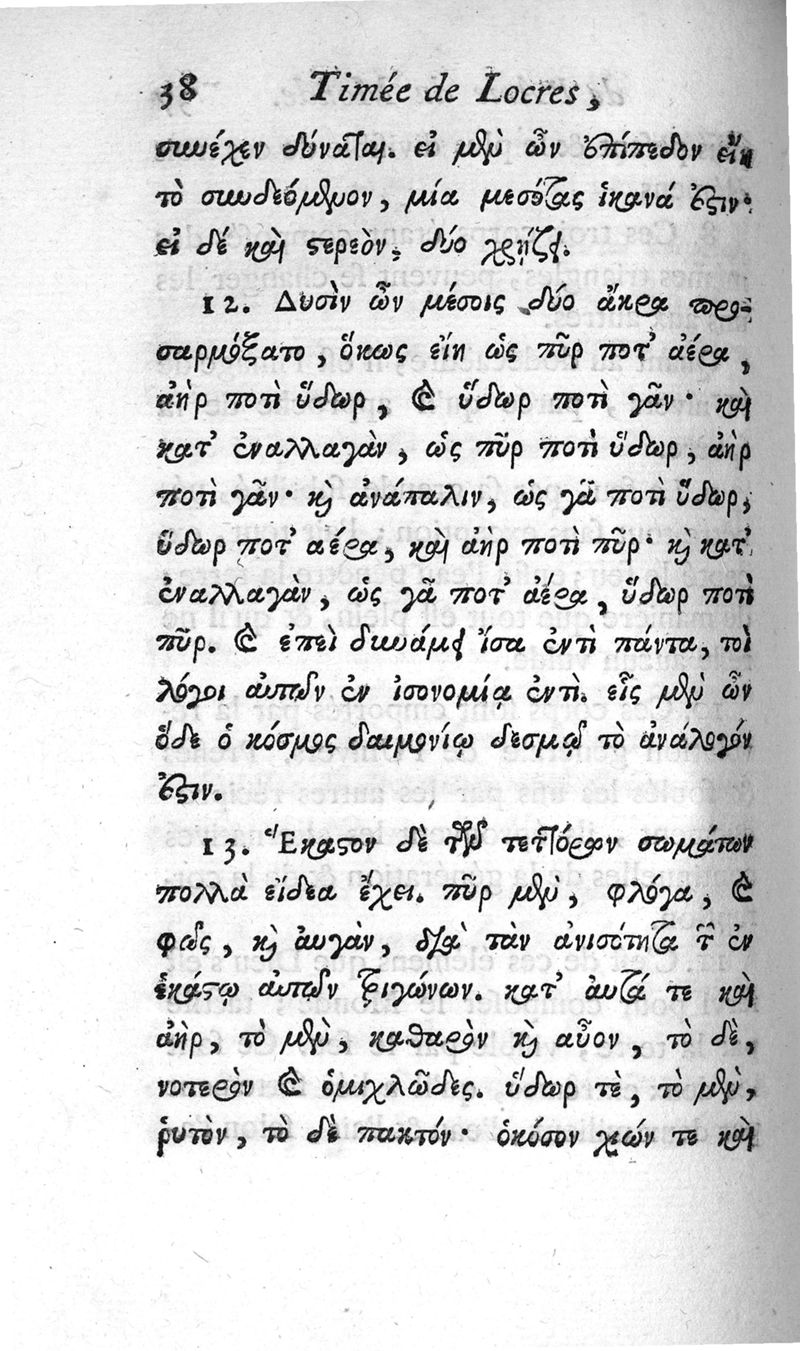 38 Timée de Locres,
συνέχεν δύναται. εἰ μὲν ὦν ἐπίπεδον εἴη
τὸ συνδεόμενον, μία μεσότας ἱκανά ἐστιν·
εἰ δέ καὶ στερεὸν, δύο χρῄζει.
12. Δυσὶν ὦν μέσοις δύο ἄκρα προ-
σαρμόξατο, ὅκως εἴη ὡς πῦρ ποτ' ἀέρα,
ἀὴρ ποτὶ ὕδωρ, καὶ ὕδωρ ποτὶ γᾶν· καὶ
κατ' ἐναλλαγὰν, ὡς πῦρ ποτὶ ὕδωρ, ἀὴρ
ποτὶ γᾶν· καὶ ἀνάπαλιν, ὡς γᾶ ποτὶ ὕδωρ,
ὕδωρ ποτ' αέρα, καὶ ἀὴρ ποτὶ πῦρ· καὶ κατ'
ἐναλλαγὰν, ὡς γᾶ ποτ' ἀέρα, ὕδωρ ποτὶ
πῦρ. καὶ ἐπεὶ δυνάμει ἴσα ἐντὶ πάντα, τοὶ
λόγοι αὐτῶν ἐν ἰσονομίᾳ ἐντὶ. εἷς μὲν ὦν
ὅδε ὁ κόσμος δαιμονίῳ δεσμῷ τὸ ἀνάλογόν
ἐστιν.
13. Ἕκαστον δὲ τῶν τεττόρων σωμάτων
πολλὰ εἴδεα ἔχει. πῦρ μὲν, φλόγα, καὶ
φῶς, καὶ αυγὰν, διὰ τὰν ἀνισότητα τῶν ἐν
ἑκάστῳ αὐτῶν τριγώνων. κατ' ἀυτά τε καὶ
ἀὴρ, τὸ μὲν, καθαρὸν καὶ αὖον, τὸ δὲ,
νοτερὸν καὶ ὁμιχλῶδες. ὕδωρ τὲ, τὸ μὲν,
ῥυτὸν, τὸ δὲ πακτόν· ὁκόσον χιών τε καὶ